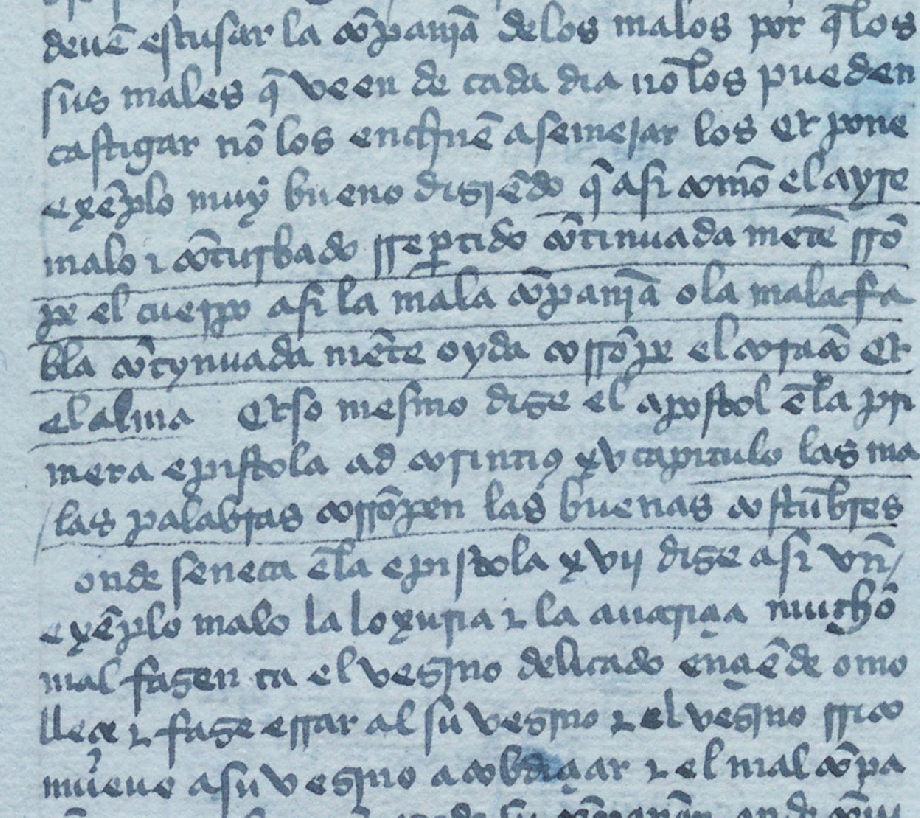 deuē escusar la cōpanja delos malos por q̄ los
sus males q̄ veen de cada dia nō los pueden
castigar nō los enclinē a semejar los Et pone
exēplo muy bueno diziēdo q̄ asi commo el ayre
malo ⁊ cōturbado sse partido cōtinuada mēte corrō
pe el cuerpo asi la mala cōpanja o la mala fa
bla cōtynuada mēte oyda corrōpe el coraçō Et
el alma Et so mesmo dize el apostol ēla pri
mera epistola ad corintios xv capitulo las ma
las palabras corrōpen las buenas costūbres
onde seneca ēla epistola xvij dize asi vn̄
exēplo malo la loxuria ⁊ la auariçia muchō
mal fazen ca el vezino delicado ençiēde omo
lleçe ⁊ faze errar al su vezino ⁊ el vezino rrico
mueue a su vezino a cobdiçiar ⁊ el mal cōpa